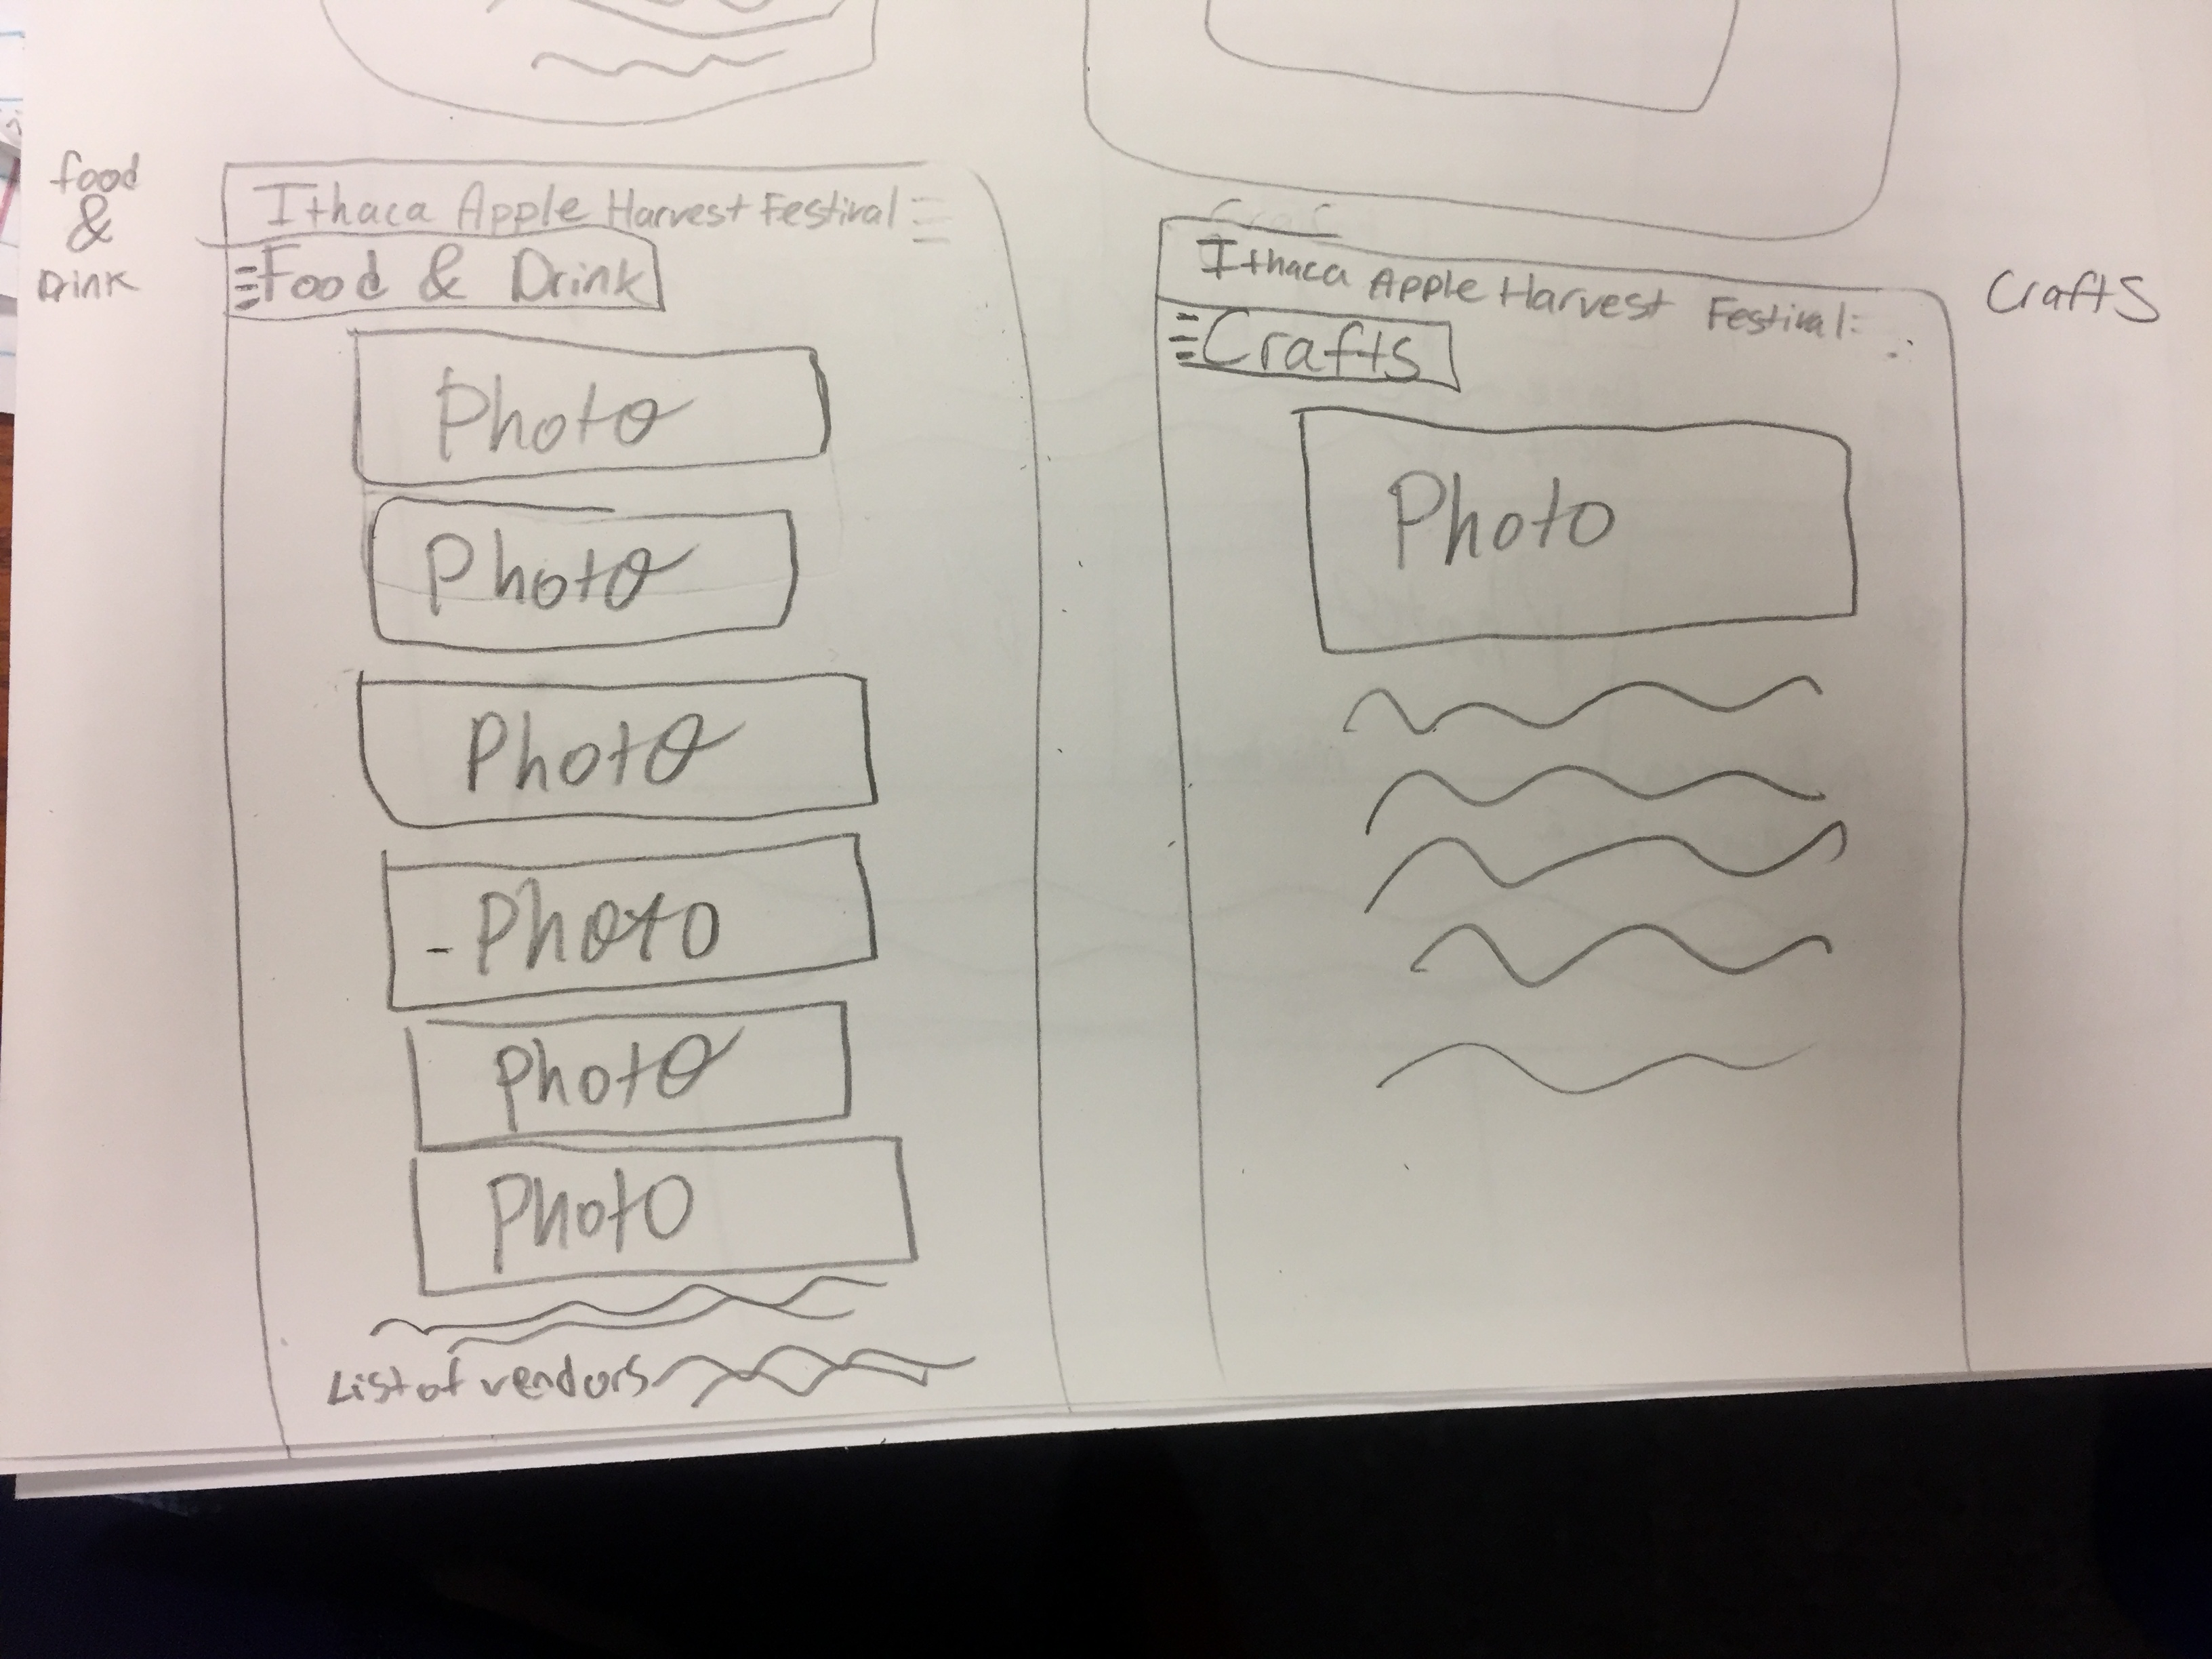 food
&
Drink
Ithaca Apple Harvest Festival
Food & Drink
Photo
Photo
Photo
- Photo
Photo
Photo
List of vendors
Crafts
Ithaca Apple Harvest Festival
Crafts
Photo